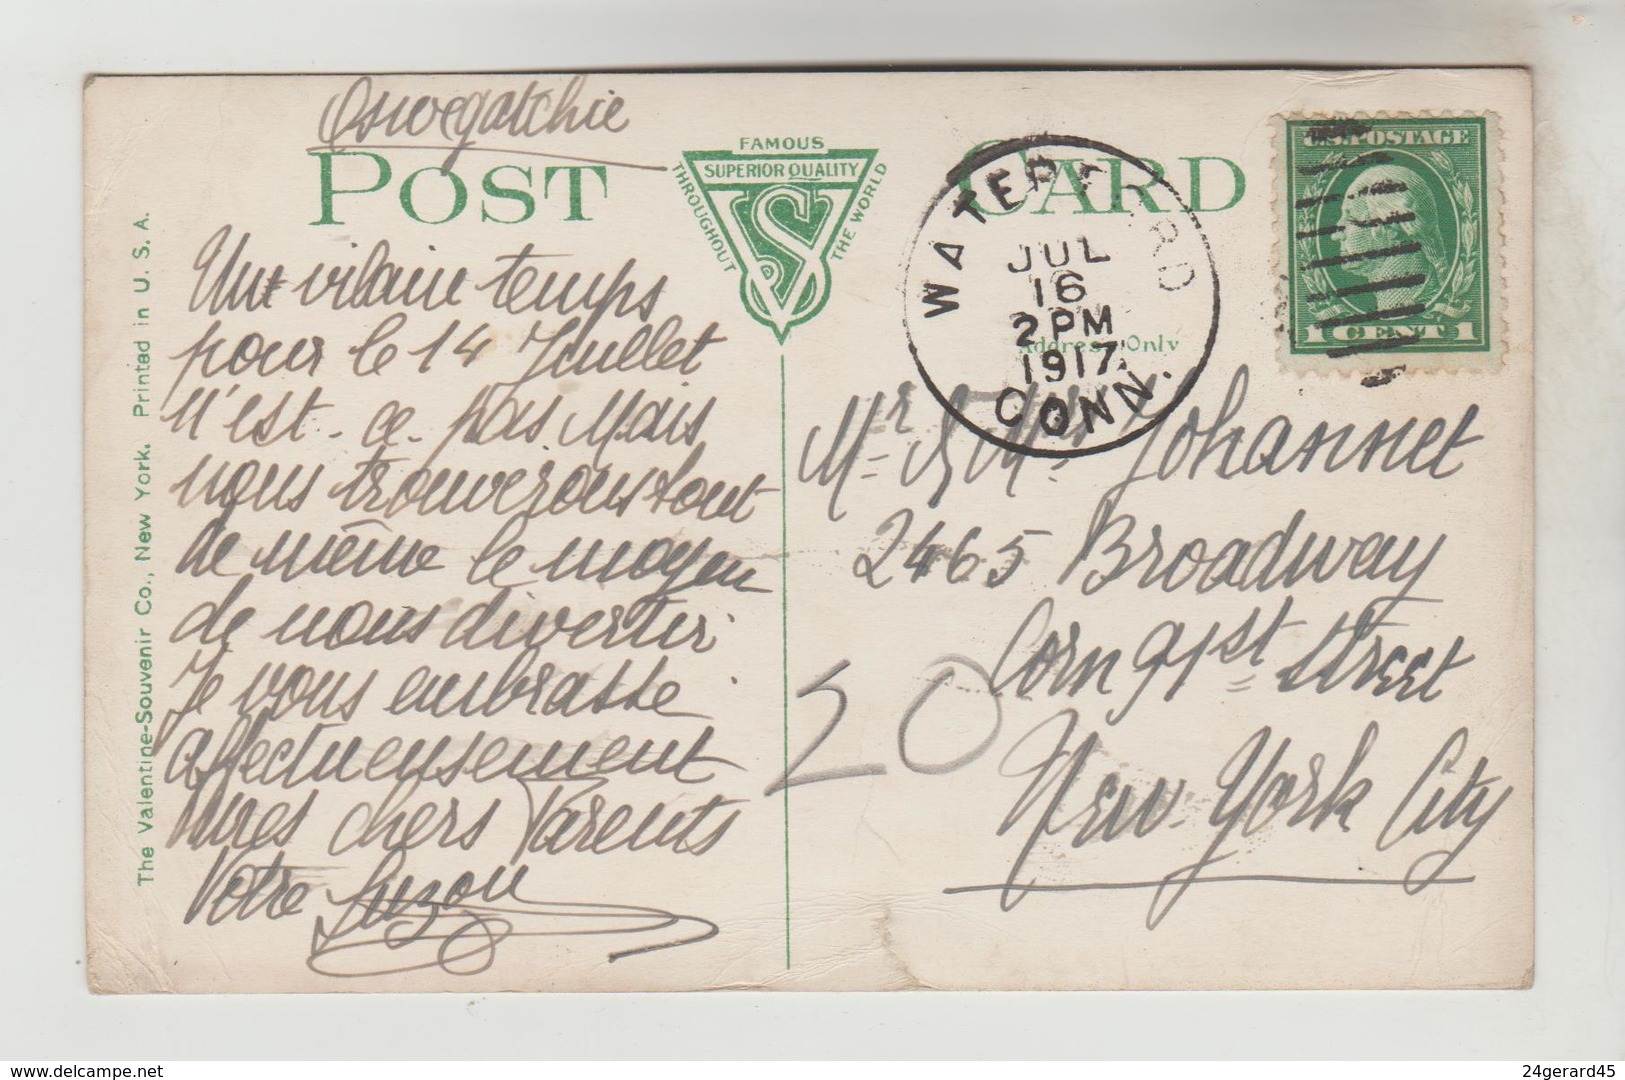 Oswegatchie
POST CARD
FAMOUS
SUPERIOR QUALITY
THROUGHOUT
THE WORLD
VS
Address Only
WATERFORD
JUL
16
2 PM
1917
CONN.
U.S. POSTAGE
1 CENT 1
Un vilain temps
pour le 14 Juillet
n'est-ce-pas Mais
nous trouverons tout
de même le moyen
de nous divertir
Je vous embrasse
affectueusement
mes chers Parents
Votre Suzon
Mr & Mrs Johannet
2465 Broadway
Corn 91st Street
New-York City
20
The Valentine-Souvenir Co., New York. Printed in U. S. A.
www.delcampe.net
24gerard45